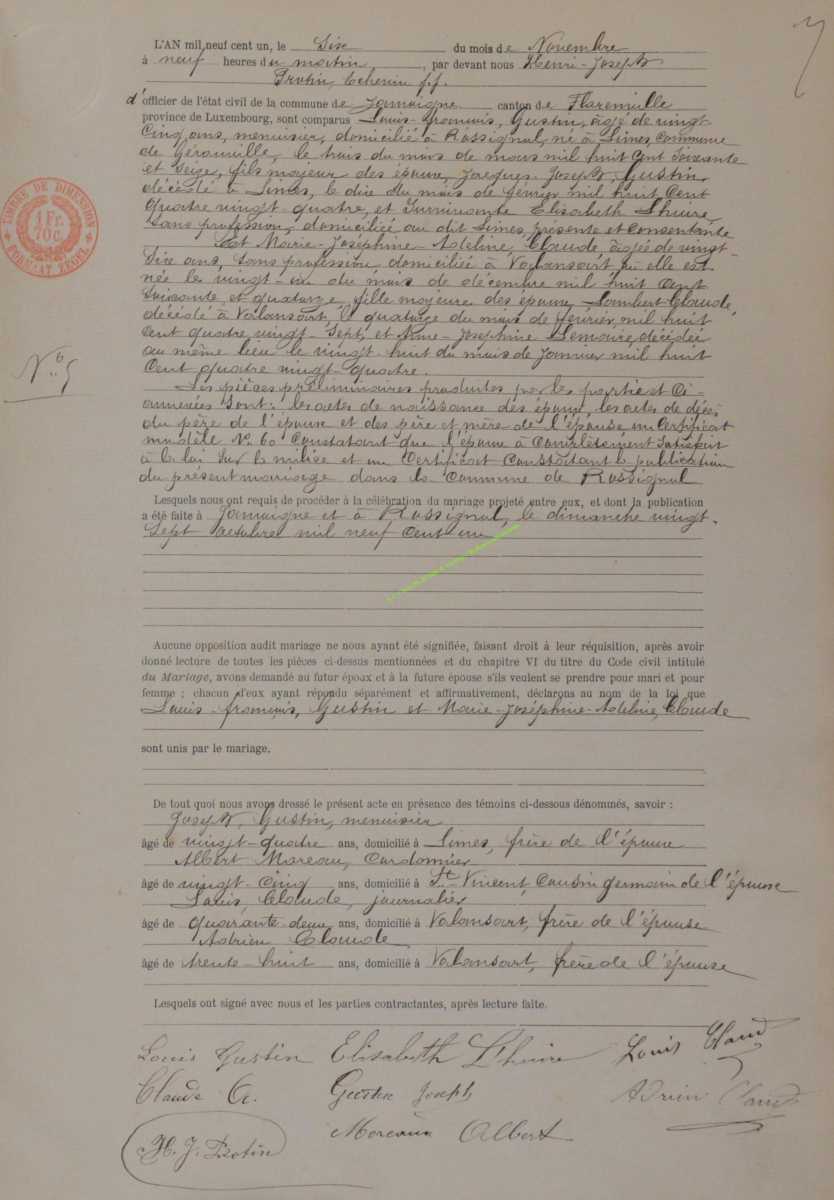 TIMBRE DE DIMENSION
1 Fr.
70c.
FORMAT REGL.
L'AN mil neuf cent un, le Six du mois de Novembre
à neuf heures du matin, par devant nous Henri-Joseph
Protin, Echevin ff.
d'officier de l'état civil de la commune de Jamoigne canton de Florenville
province de Luxembourg, sont comparus Louis-François, Gustin, âgé de vingt
Cinq ans, menuisier, domicilié à Rossignol, né à Limes, Commune
de Gérouville, le trois du mois de mars mil huit Cent Soixante
et Seize, fils majeur des époux, Jacques-Joseph, Gustin,
décédé à Limes, le dix du mois de février mil huit Cent
quatre vingt-quatre, et Elisabeth Lhuire,
Sans profession, domiciliée au dit Limes, présente et Consentante
Et Marie-Joséphine-Adeline, Claude, âgée de vingt-
Six ans, Sans profession domiciliée à Valansart où elle est
née le vingt-un du mois de décembre mil huit Cent
Soixante et quatorze, fille majeure des époux, Lambert-Claude,
décédé à Valansart, le quatorze du mois de février mil huit
Cent quatre vingt-Sept, et Anne-Joséphine Lemaire, décédée
au même lieu le vingt huit du mois de Janvier mil huit
Cent quatre vingt-quatre.
N° 5
Les pièces préliminaires produites par les parties et Ci-
annexées Sont: les actes de naissance des époux, les actes de décès
du père de l'époux et des père et mère de l'épouse, un Certificat
modèle N° 60 Constatant que l'époux à Complètement Satisfait
à la loi sur la milice et un Certificat Constatant la publication
du présent mariage dans la Commune de Rossignol
Lesquels nous ont requis de procéder à la célébration du mariage projeté entre eux, et dont la publication
a été faite à Jamoigne et à Rossignol, le dimanche vingt-
Sept octobre mil neuf Cent un
Aucune opposition audit mariage ne nous ayant été signifiée, faisant droit à leur réquisition, après avoir
donné lecture de toutes les pièces ci-dessus mentionnées et du chapitre VI du titre du Code civil intitulé
du Mariage, avons demandé au futur époux et à la future épouse s'ils veulent se prendre pour mari et pour
femme ; chacun d'eux ayant répondu séparément et affirmativement, déclarons au nom de la loi que
Louis-François, Gustin et Marie-Joséphine-Adeline, Claude
sont unis par le mariage.
De tout quoi nous avons dressé le présent acte en présence des témoins ci-dessous dénommés, savoir :
Joseph, Gustin, menuisier
âgé de vingt-quatre ans, domicilié à Limes, frère de l'époux
Albert Moreau, Cordonnier
âgé de vingt-Cinq ans, domicilié à St-Vincent, Cousin germain de l'épouse
Louis, Claude, journalier
âgé de quarante-deux ans, domicilié à Valansart, frère de l'épouse
Adrien Claude
âgé de trente-huit ans, domicilié à Valansart, frère de l'épouse
Lesquels ont signé avec nous et les parties contractantes, après lecture faite.
Louis Gustin Elisabeth Lhuire Louis Claud
Claude A. Gustin Joseph Adrien Claud
Moreau Albert
H. J. Protin